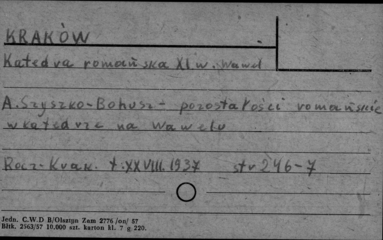 KRAKÓW
Katedra romańska XI w. Wawel
A. Szyszko-Bohusz - pozostałości romańskie
w katedrze na Wawelu
Rocz. Krak. t. XXVIII. 1937 str 246-7
Jedn. C.W.D B/Olsztyn Zam 2776 /on/ 57
Bltk. 2563/57 10.000 szt. karton kl. 7 g 220.